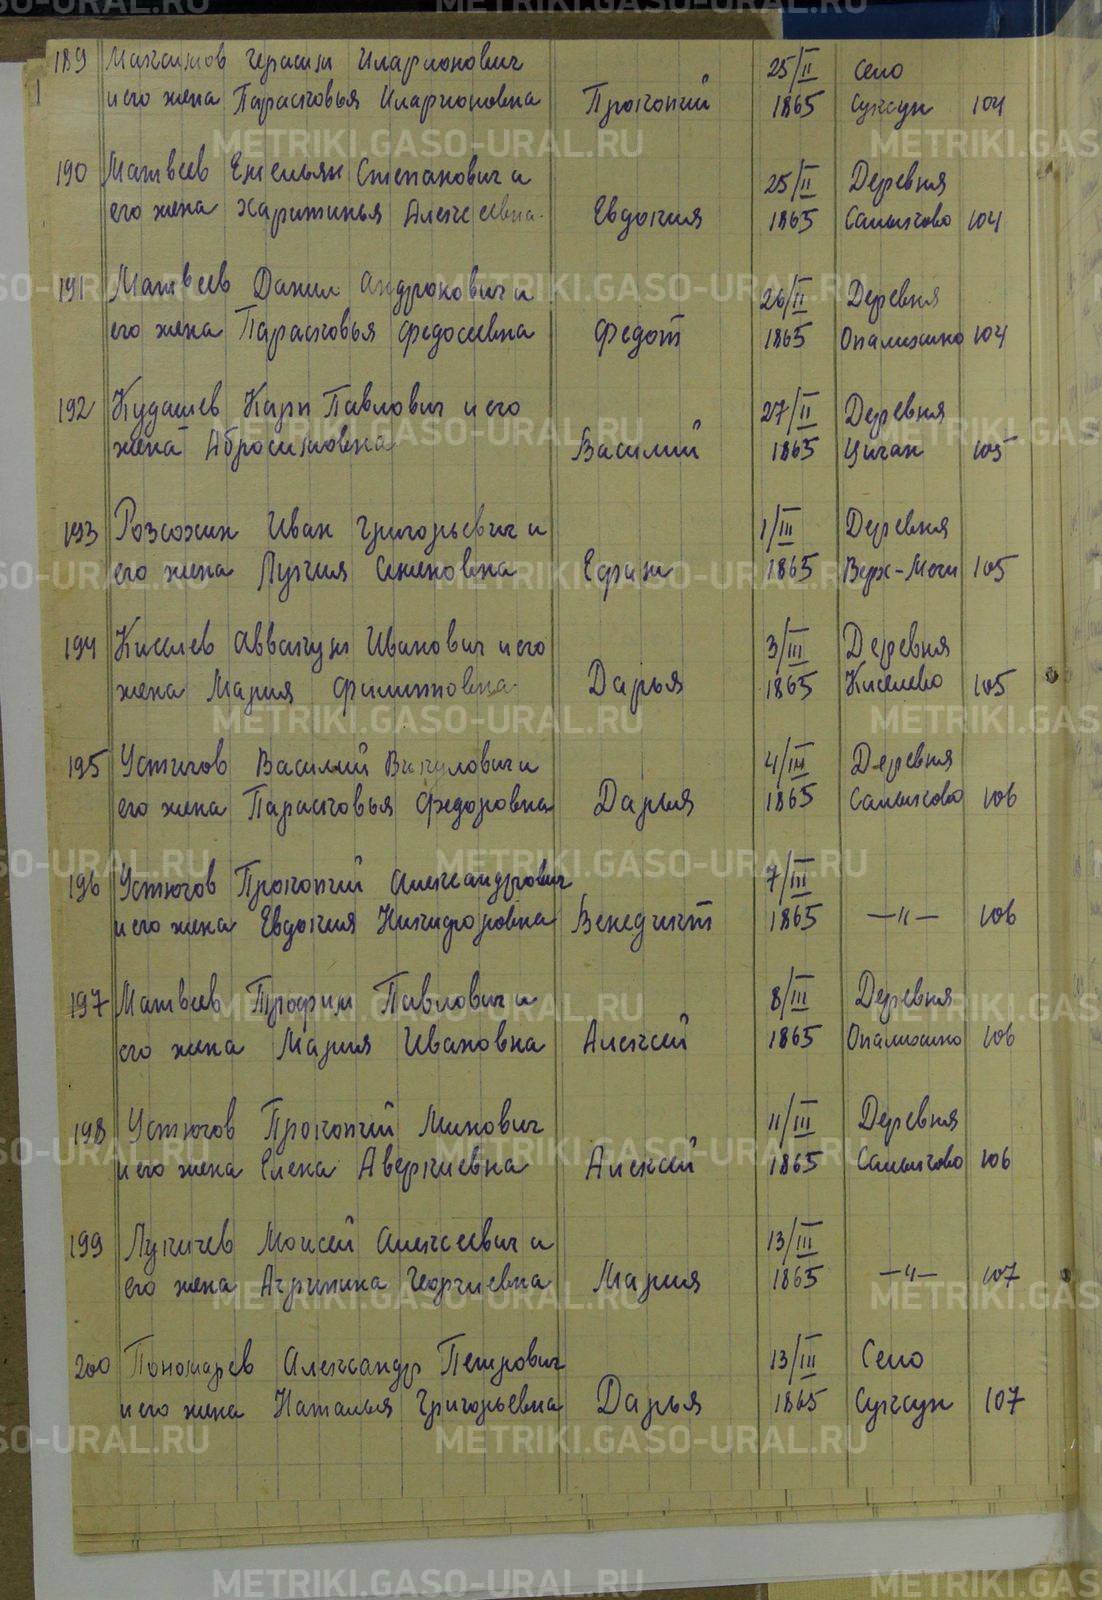 189 Максимов Герасим Иларионович 25/II Село
и его жена Парасковья Иларионовна Прокопий 1865 Суксун 104
190 Матвеев Емельян Степанович и 25/II Деревня
его жена Харитинья Алексеевна Евдокия 1865 Самычково 104
191 Матвеев Данил Андронович и 26/II Деревня
его жена Парасковья Федосеевна Федот 1865 Опалихино 104
192 Кудашев Карп Павлович и его 27/II Деревня
жена Абросимовна Василий 1865 Цыган 105
193 Розсохин Иван Григорьевич и 1/III Деревня
его жена Лукия Семеновна Ефим 1865 Верх-Мочи 105
194 Киселев Аввакум Иванович и его 3/III Деревня
жена Мария Филиповна Дарья 1865 Киселево 105
195 Устюгов Василий Викулович и 4/III Деревня
его жена Парасковья Федоровна Дарья 1865 Самычково 106
196 Устюгов Прокопий Александрович 7/III
и его жена Евдокия Никифоровна Венедикт 1865 —"— 106
197 Матвеев Трофим Павлович и 8/III Деревня
его жена Мария Ивановна Алексей 1865 Опалихино 106
198 Устюгов Прокопий Минович 11/III Деревня
и его жена Елена Аверкиевна Алексей 1865 Самычково 106
199 Лукичев Моисей Алексеевич и 13/III
его жена Агрипина Георгиевна Мария 1865 —"— 107
200 Пономарев Александр Петрович 13/III Село
и его жена Наталья Григорьевна Дарья 1865 Суксун 107
METRIKI.GASO-URAL.RU